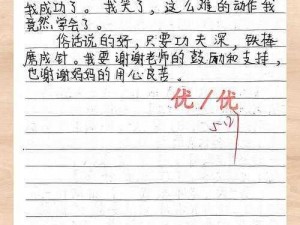 我成功了。我笑了，这么难的动作我
竟然学会了。
俗话说的好，只要功夫深，铁棒
磨成针。我要谢谢老师的鼓励和支持，
也谢谢妈妈的用心良苦。
优/优
5.12